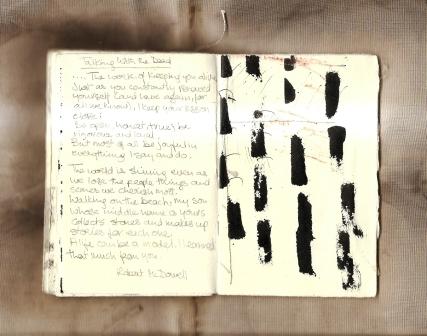 Talking With the Dead
.... The work of keeping you alive
Just as you constantly renewed
yourself (and have again, for
all we know), I keep your lesson
close:
Be open, honest, trues be
rigorous and loyal.
But most of all be joyful in
everything I say and do.
The world is shining even as
we lose the people, things and
scenes we cherish most.
Walking on the beach, my son
whose middle name is yours
collects stones and makes up
stories for each one.
A life can be a model. I learned
that much from you.
Robert McDowell